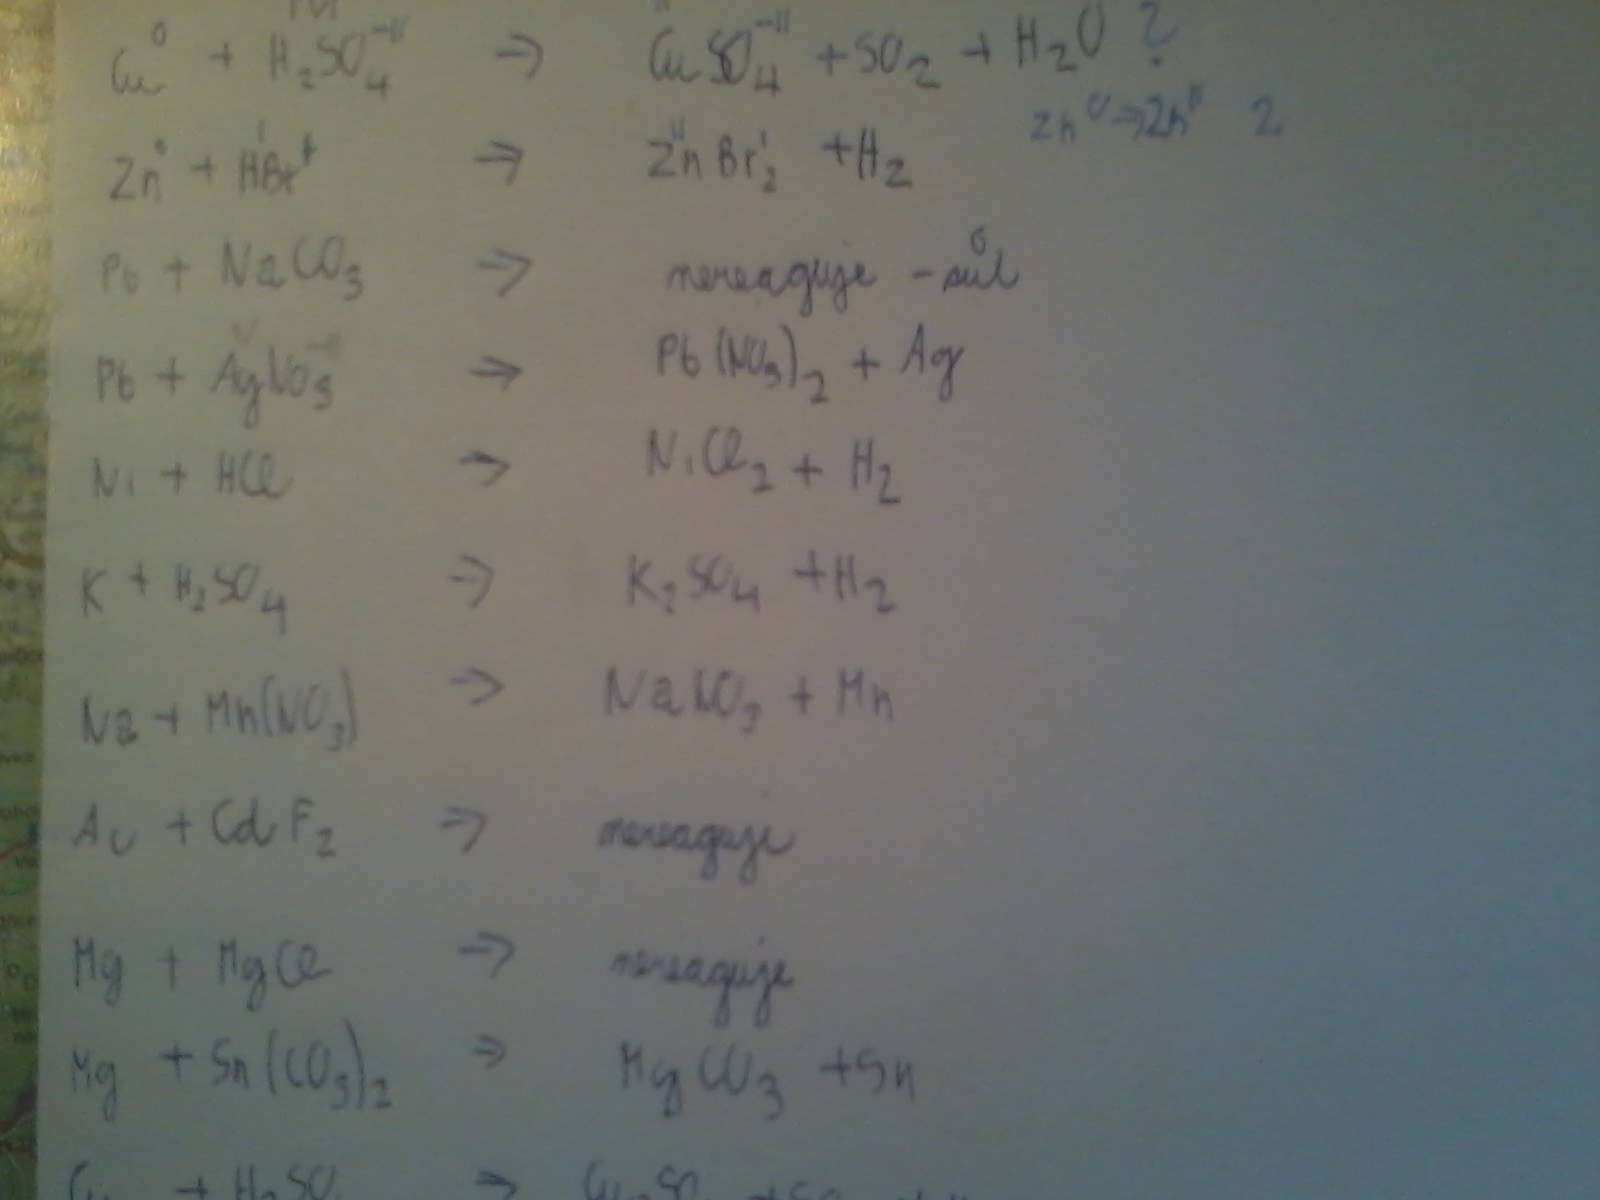 Cu⁰ + H₂SO₄⁻ᴵᴵ → CuSO₄⁻ᴵᴵ + SO₂ + H₂O ?
Zn⁰ → Znᴵᴵ 2
Zn⁰ + HᴵBr → ZnᴵᴵBrᴵ₂ + H₂
Pb + NaCO₃ → nereaguje - sůl
Pb + AgNO₃⁻ᴵᴵ → Pb(NO₃)₂ + Ag
Ni + HCl → NiCl₂ + H₂
K + H₂SO₄ → K₂SO₄ + H₂
Na + Mn(NO₃) → NaNO₃ + Mn
Au + CdF₂ → nereaguje
Mg + MgCl → nereaguje
Mg + Sn(CO₃)₂ → MgCO₃ + Sn
Cu + H₂SO →